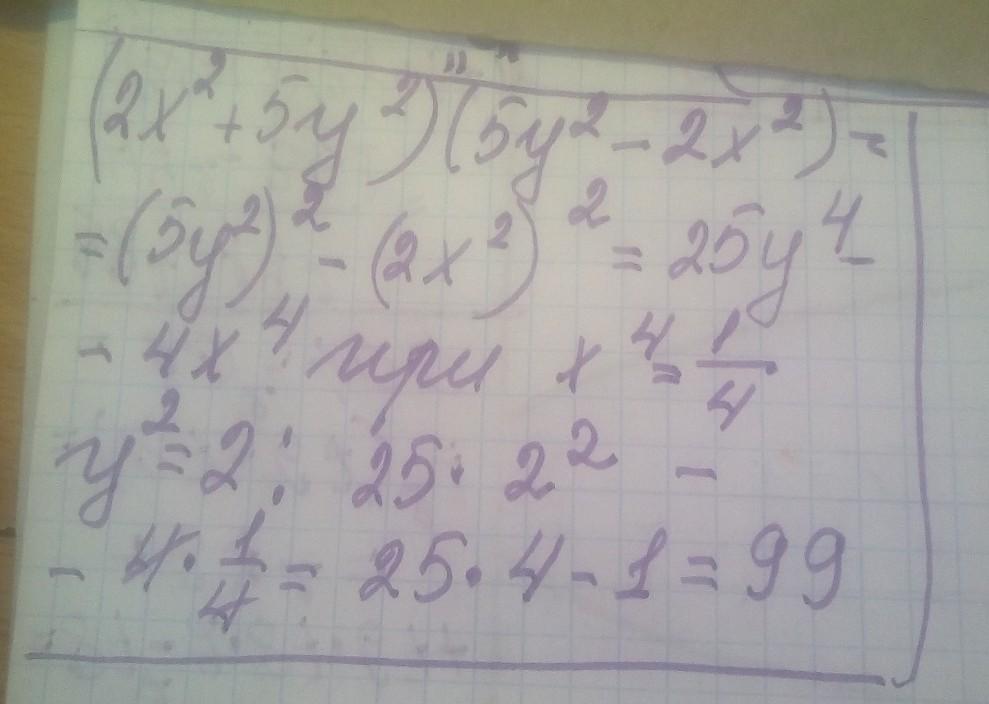 (2x² + 5y²)(5y² - 2x²) =
= (5y²)² - (2x²)² = 25y⁴ -
- 4x⁴ при x⁴ = 1/4
y² = 2: 25 · 2² -
- 4 · 1/4 = 25 · 4 - 1 = 99